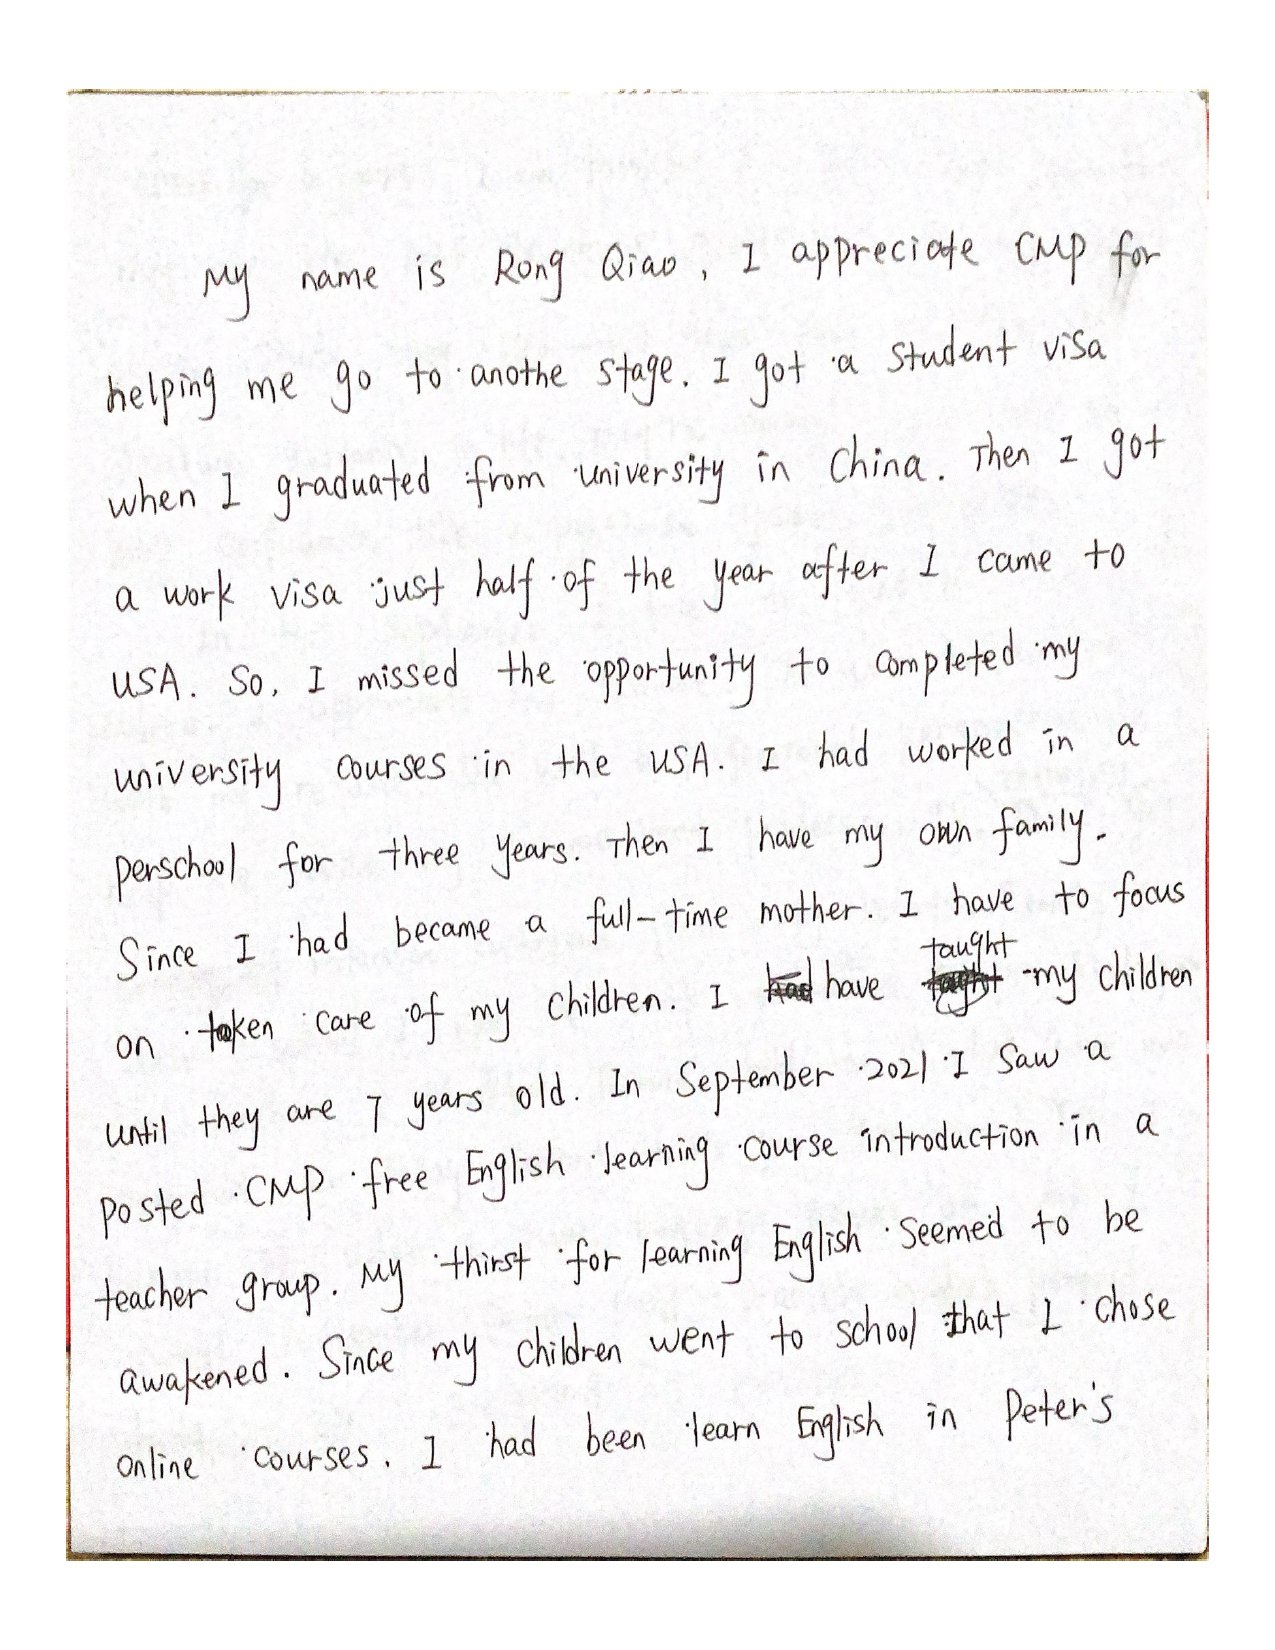 My name is Rong Qiao, I appreciate CMP for
helping me go to anothe stage. I got a student visa
when I graduated from university in China. Then I got
a work visa just half of the year after I came to
USA. So, I missed the opportunity to completed my
university courses in the USA. I had worked in a
perschool for three years. Then I have my own family.
Since I had became a full-time mother. I have to focus
on taken care of my children. I have taught my children
until they are 7 years old. In September 2021 I saw a
posted CMP free English learning course introduction in a
teacher group. My thirst for learning English seemed to be
awakened. Since my children went to school that I chose
online courses. I had been learn English in Peter's